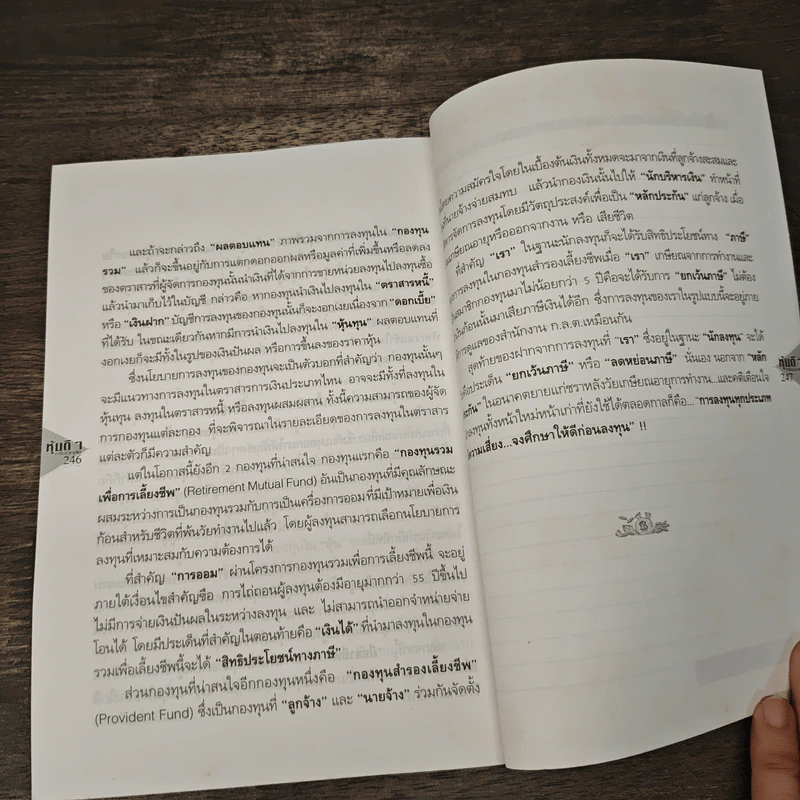 และถ้าจะกล่าวถึง “ผลตอบแทน” ภาพรวมจากการลงทุนใน “กองทุน
รวม” แล้วก็จะขึ้นอยู่กับการแตกดอกออกผลหรือมูลค่าที่เพิ่มขึ้นหรือลดลง
ของตราสารที่ผู้จัดการกองทุนนั้นนำเงินที่ได้จากการขายหน่วยลงทุนไปลงทุนซื้อ
แล้วนำมาเก็บไว้ในบัญชี กล่าวคือ หากกองทุนนำเงินไปลงทุนใน “ตราสารหนี้”
หรือ “เงินฝาก” บัญชีการลงทุนของกองทุนนั้นก็จะงอกเงยเนื่องจาก “ดอกเบี้ย”
ที่ได้รับ ในขณะเดียวกันหากมีการนำเงินไปลงทุนใน “หุ้นทุน” ผลตอบแทนที่
งอกเงยก็จะมีทั้งในรูปของเงินปันผล หรือการขึ้นลงของราคาหุ้น
ซึ่งนโยบายการลงทุนของกองทุนจะเป็นตัวบอกที่สำคัญว่า กองทุนนั้นๆ
จะมีแนวทางการลงทุนในตราสารการเงินประเภทไหน อาจจะมีทั้งที่ลงทุนใน
หุ้นทุน ลงทุนในตราสารหนี้ หรือลงทุนผสมผสาน ทั้งนี้ความสามารถของผู้จัด
การกองทุนแต่ละกอง ที่จะพิจารณาในรายละเอียดของการลงทุนในตราสาร
แต่ละตัวก็มีความสำคัญ
แต่ในโอกาสนี้ยังอีก 2 กองทุนที่น่าสนใจ กองทุนแรกคือ “กองทุนรวม
เพื่อการเลี้ยงชีพ” (Retirement Mutual Fund) อันเป็นกองทุนที่มีคุณลักษณะ
ผสมระหว่างการเป็นกองทุนรวมกับการเป็นเครื่องการออมที่มีเป้าหมายเพื่อเงิน
ก้อนสำหรับชีวิตที่พ้นวัยทำงานไปแล้ว โดยผู้ลงทุนสามารถเลือกนโยบายการ
ลงทุนที่เหมาะสมกับความต้องการได้
ที่สำคัญ “การออม” ผ่านโครงการกองทุนรวมเพื่อการเลี้ยงชีพนี้ จะอยู่
ภายใต้เงื่อนไขสำคัญชื่อ การไถ่ถอนผู้ลงทุนต้องมีอายุมากกว่า 55 ปีขึ้นไป
ไม่มีการจ่ายเงินปันผลในระหว่างลงทุน และ ไม่สามารถนำออกจำหน่ายจ่าย
โอนได้ โดยมีประเด็นที่สำคัญในตอนท้ายคือ “เงินได้” ที่นำมาลงทุนในกองทุน
รวมเพื่อเลี้ยงชีพนี้จะได้ “สิทธิประโยชน์ทางภาษี”
ส่วนกองทุนที่น่าสนใจอีกกองทุนหนึ่งคือ “กองทุนสำรองเลี้ยงชีพ”
(Provident Fund) ซึ่งเป็นกองทุนที่ “ลูกจ้าง” และ “นายจ้าง” ร่วมกันจัดตั้ง
หุ้นดี ๆ
246
โดยความสมัครใจโดยในเบื้องต้นเงินทั้งหมดจะมาจากเงินที่ลูกจ้างสะสมและ
นายจ้างจ่ายสมทบ แล้วนำกองเงินนั้นไปให้ “นักบริหารเงิน” ทำหน้าที่
จัดการลงทุนโดยมีวัตถุประสงค์เพื่อเป็น “หลักประกัน” แก่ลูกจ้าง เมื่อ
เกษียณอายุหรือออกจากงาน หรือ เสียชีวิต
ที่สำคัญ “เรา” ในฐานะนักลงทุนก็จะได้รับสิทธิประโยชน์ทาง “ภาษี”
การลงทุนในกองทุนสำรองเลี้ยงชีพเมื่อ “เรา” เกษียณจากการทำงานและ
สมาชิกกองทุนมาไม่น้อยกว่า 5 ปีคือจะได้รับการ “ยกเว้นภาษี” ไม่ต้อง
เงินก้อนนั้นมาเสียภาษีเงินได้อีก ซึ่งการลงทุนของเราในรูปแบบนี้จะอยู่ภาย
การดูแลของสำนักงาน ก.ล.ต.เหมือนกัน
สุดท้ายของฝากจากการลงทุนที่ “เรา” ซึ่งอยู่ในฐานะ “นักลงทุน” จะได้
คือประเด็น “ยกเว้นภาษี” หรือ “ลดหย่อนภาษี” นั่นเอง นอกจาก “หลัก
ประกัน” ในอนาคตยายแก่ชราหลังวัยเกษียณอายุการทำงาน...และคติเตือนใจ
ลงทุนทั้งหน้าใหม่หน้าเก่าที่ยังใช้ได้ตลอดกาลก็คือ... “การลงทุนทุกประเภท
ความเสี่ยง...จงศึกษาให้ดีก่อนลงทุน” !!
หุ้นดี ๆ
247